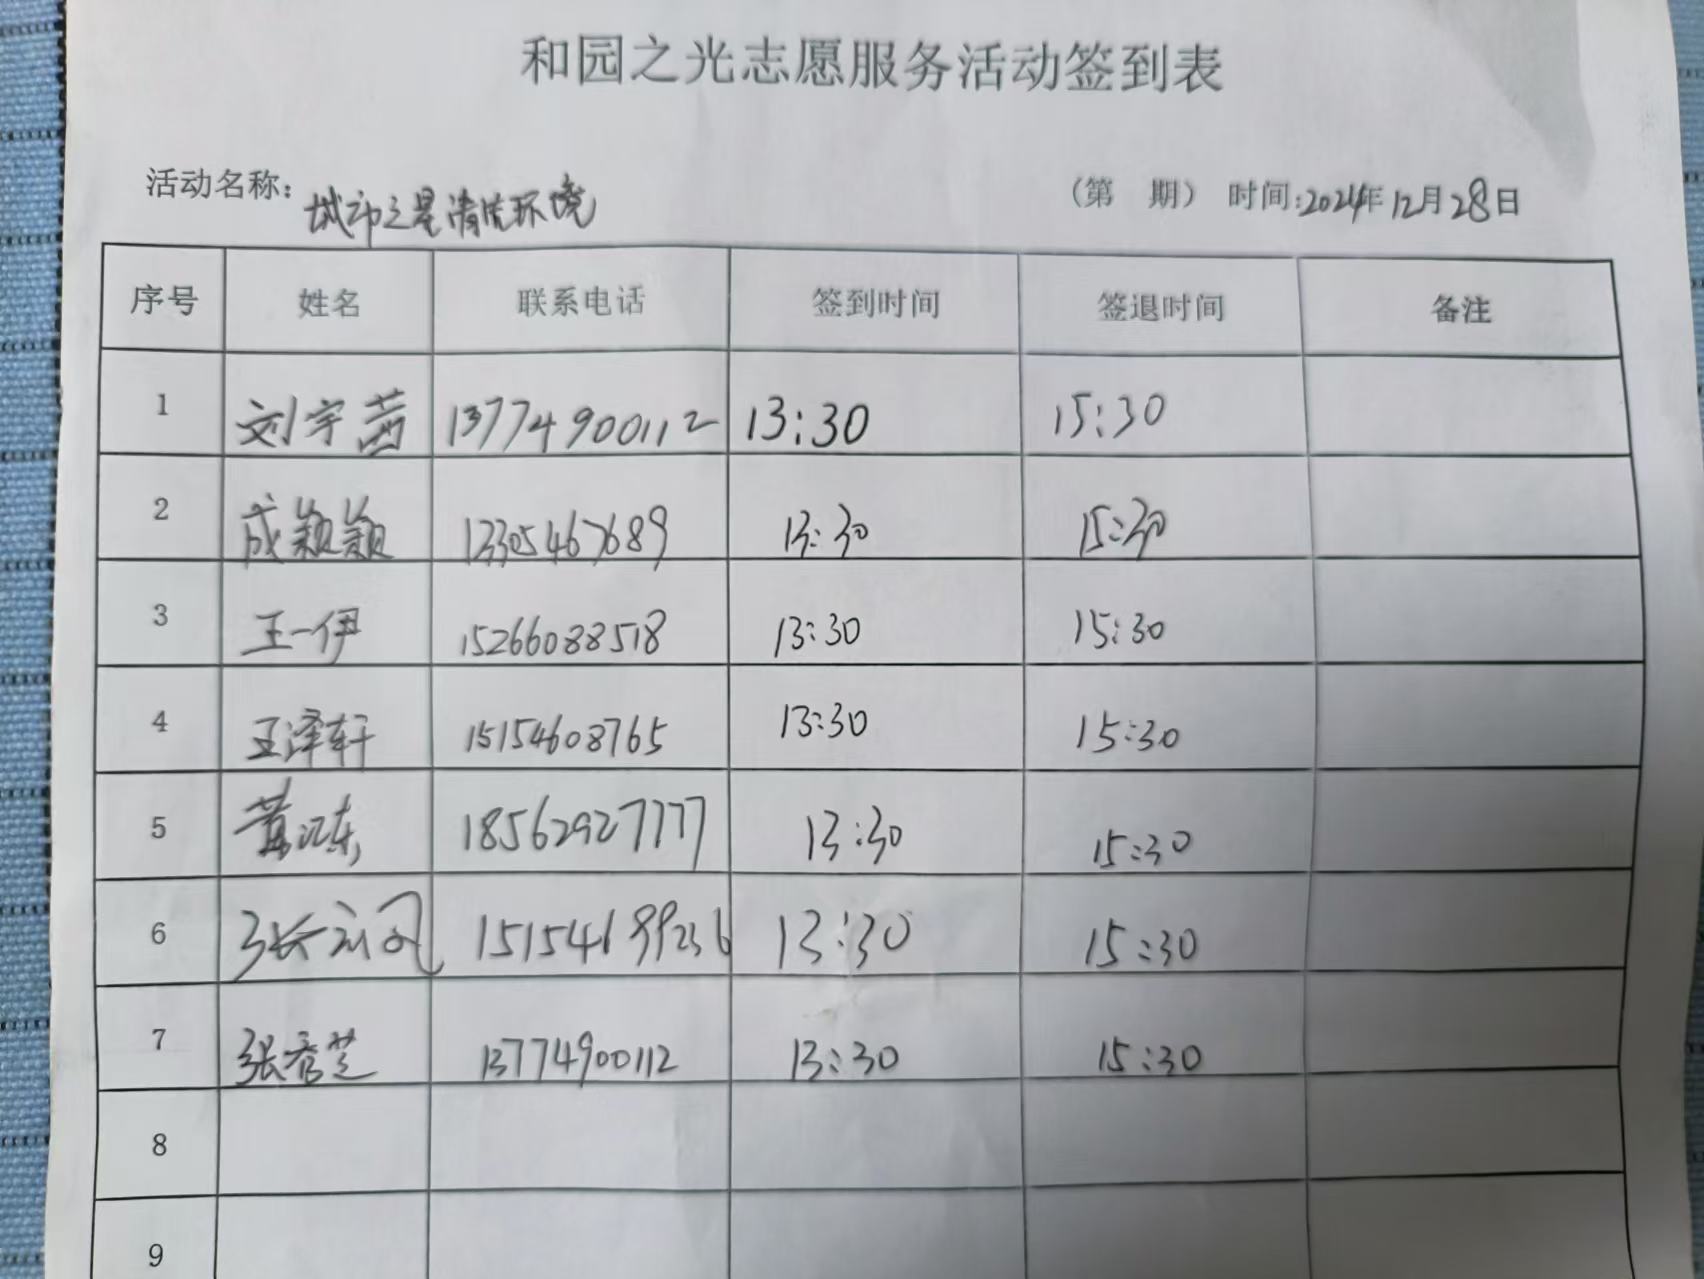 和园之光志愿服务活动签到表
活动名称：城市之星清洁环境 （第 期） 时间：2024年12月28日
序号 姓名 联系电话 签到时间 签退时间 备注
1 刘宇茜 13774900112 13:30 15:30
2 成颖颖 13305467689 13:30 15:30
3 王一伊 15266088518 13:30 15:30
4 王泽轩 15154608765 13:30 15:30
5 黄江东 18562927777 13:30 15:30
6 张云风 15154699236 13:30 15:30
7 张秀芝 13774900112 13:30 15:30
8
9